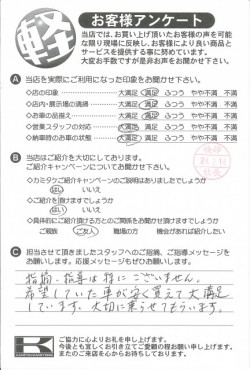 軽
お客様アンケート
当店では、お買い上げ頂いたお客様の声を可能
な限り現場に反映し、お客様により良い商品と
サービスを提供する事に努めています。
大変お手数ですが是非お声をお聞かせ下さい。
A 当店を実際にご利用になった印象をお聞かせ下さい。
◇店の印象 大満足 満足 ふつう やや不満 不満
◇店内・展示場の清掃 大満足 満足 ふつう やや不満 不満
◇お車の品揃え 大満足 満足 ふつう やや不満 不満
◇営業スタッフの対応 大満足 満足 ふつう やや不満 不満
大満足 満足 ふつう やや不満 不満
B 当店はご紹介を大切にしております。
ご紹介キャンペーンについてお聞かせ下さい。
◇カミタケご紹介キャンペーンのご説明はありましたでしょうか
はい いいえ
◇ご紹介を頂けますでしょうか
はい いいえ
◇具体的にご紹介頂ける方とのご関係をお聞かせ頂けますでしょうか
ご親族 ご友人 職場の方 機会があれば紹介したい
C 担当させて頂きましたスタッフへのご指摘、ご指導メッセージを
お願いします。応援メッセージもぜひお願いします。
指摘・指導は特にございません。
希望していた車が安く買えて大満足
しています。大切に乗らせてもらいます。
K
ご協力に心よりお礼を申し上げます。
今後とも宜しくお引き立てご愛顧の程お願い申し上げます。
またのご来店を心からお待ちしております。